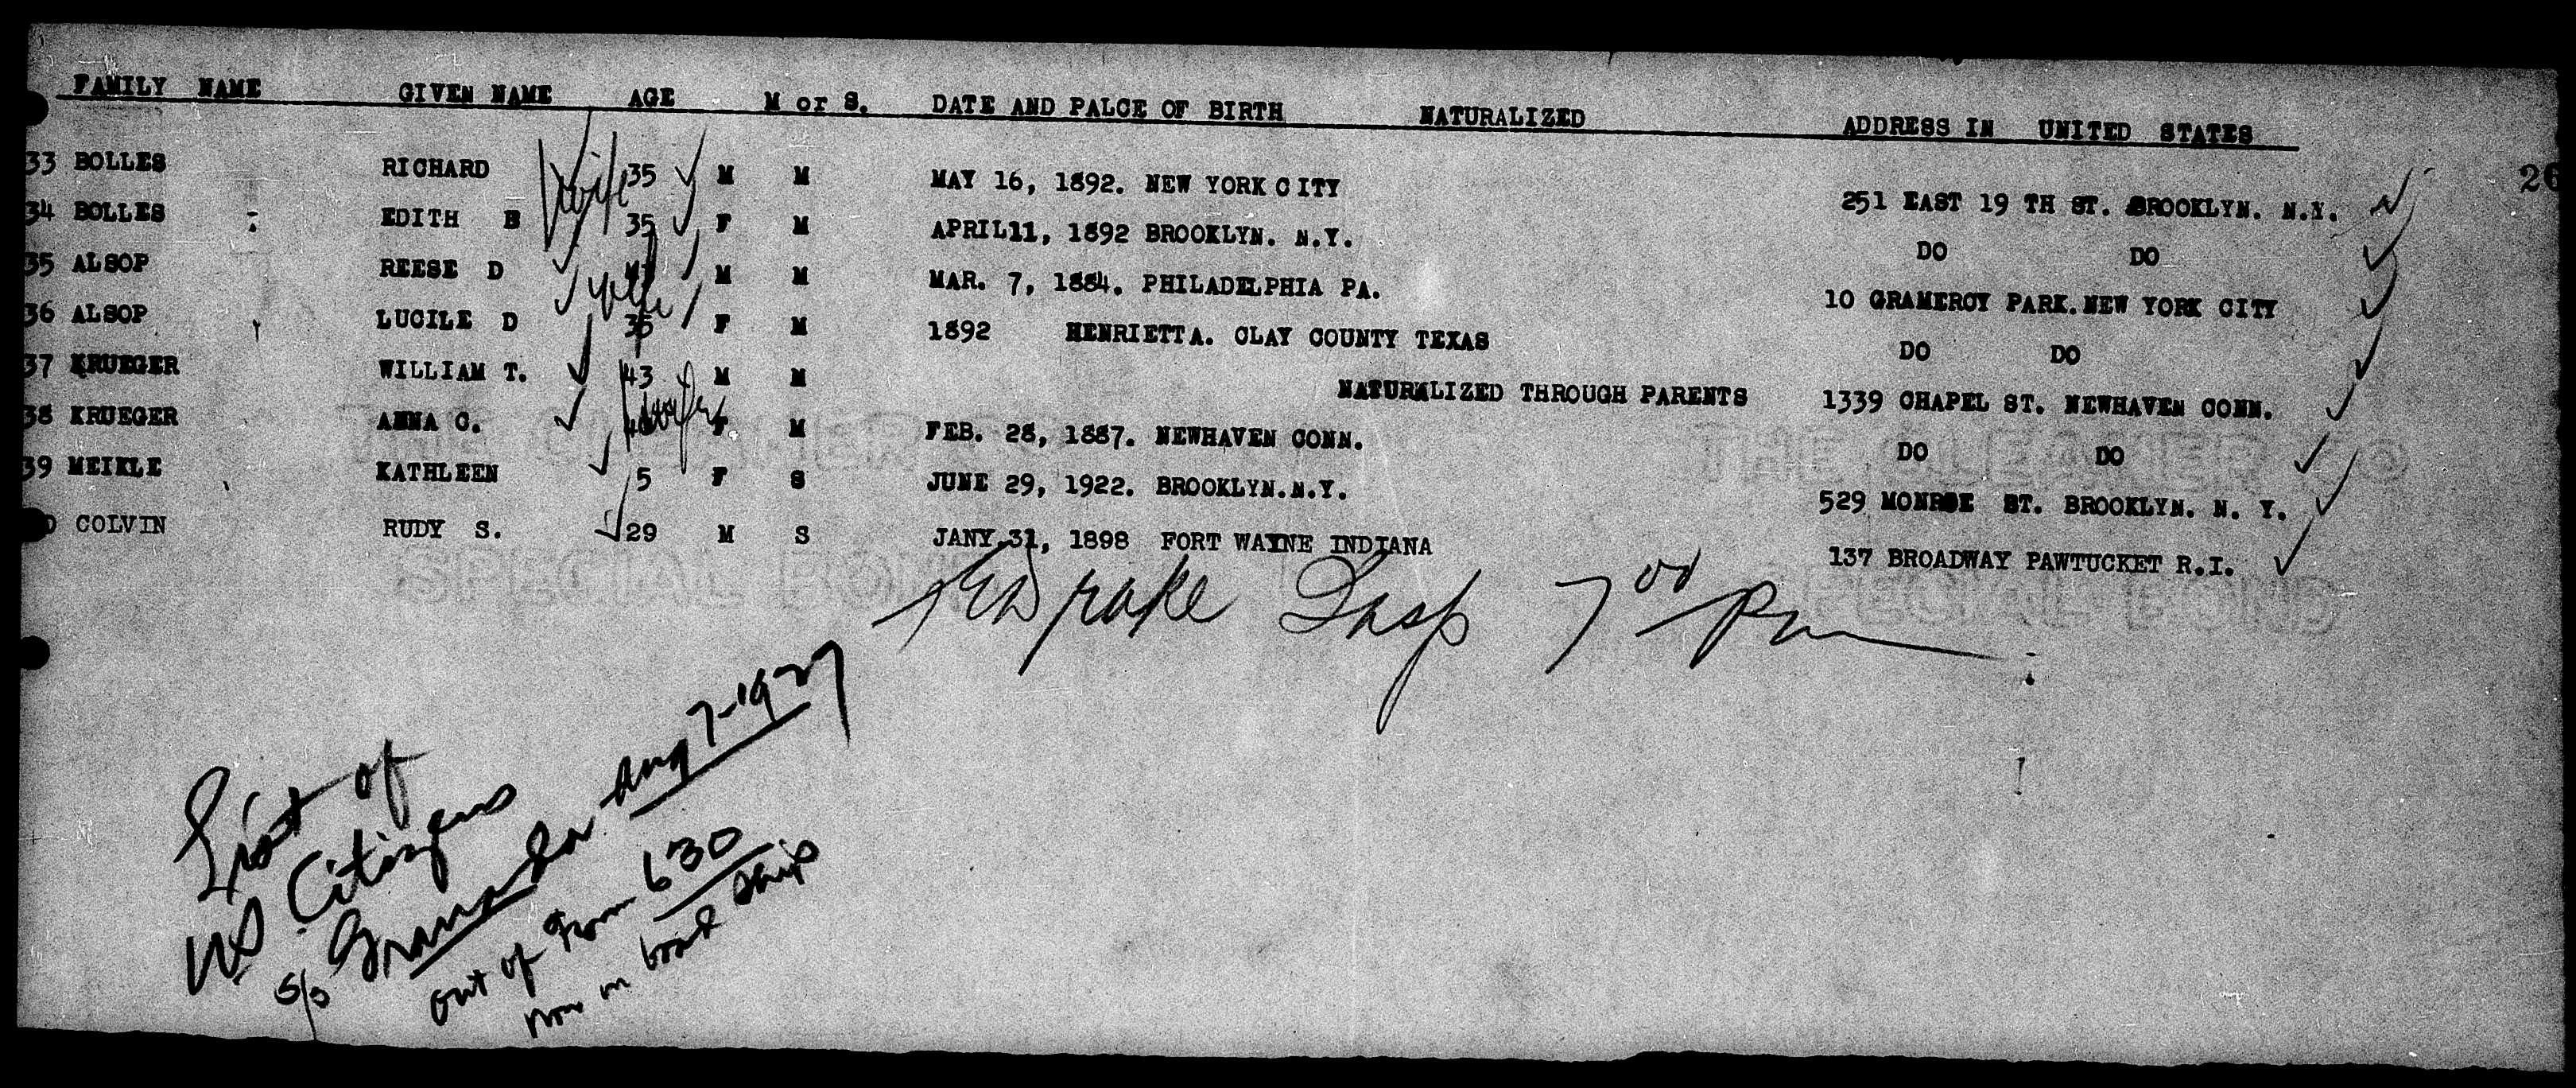 FAMILY NAME GIVEN NAME AGE M or S. DATE AND PALCE OF BIRTH NATURALIZED ADDRESS IN UNITED STATES
26
33 BOLLES RICHARD 35 M M MAY 16, 1892. NEW YORK CITY 251 EAST 19 TH ST. BROOKLYN. N.Y.
wife
34 BOLLES EDITH B 35 F M APRIL11, 1892 BROOKLYN. N.Y. DO DO
35 ALSOP REESE D M M MAR. 7, 1884. PHILADELPHIA PA. 10 GRAMERCY PARK. NEW YORK CITY
wife
36 ALSOP LUCILE D 35 F M 1892 HENRIETTA. CLAY COUNTY TEXAS DO DO
37 KRUEGER WILLIAM T. 43 M M NATURALIZED THROUGH PARENTS 1339 CHAPEL ST. NEWHAVEN CONN.
wife
38 KRUEGER ANNA C. F M FEB. 28, 1887. NEWHAVEN CONN. DO DO
39 MEIKLE KATHLEEN 5 F S JUNE 29, 1922. BROOKLYN.N.Y. 529 MONROE ST. BROOKLYN. N. Y.
0 COLVIN RUDY S. 29 M S JANY.31, 1898 FORT WAYNE INDIANA 137 BROADWAY PAWTUCKET R.I.
Drake Insp 7 00 Pm
List of
US Citizens
S/S Aug 7-1927
out of 630
now on board ship
THE CLEAVER CO
SPECIAL BOND